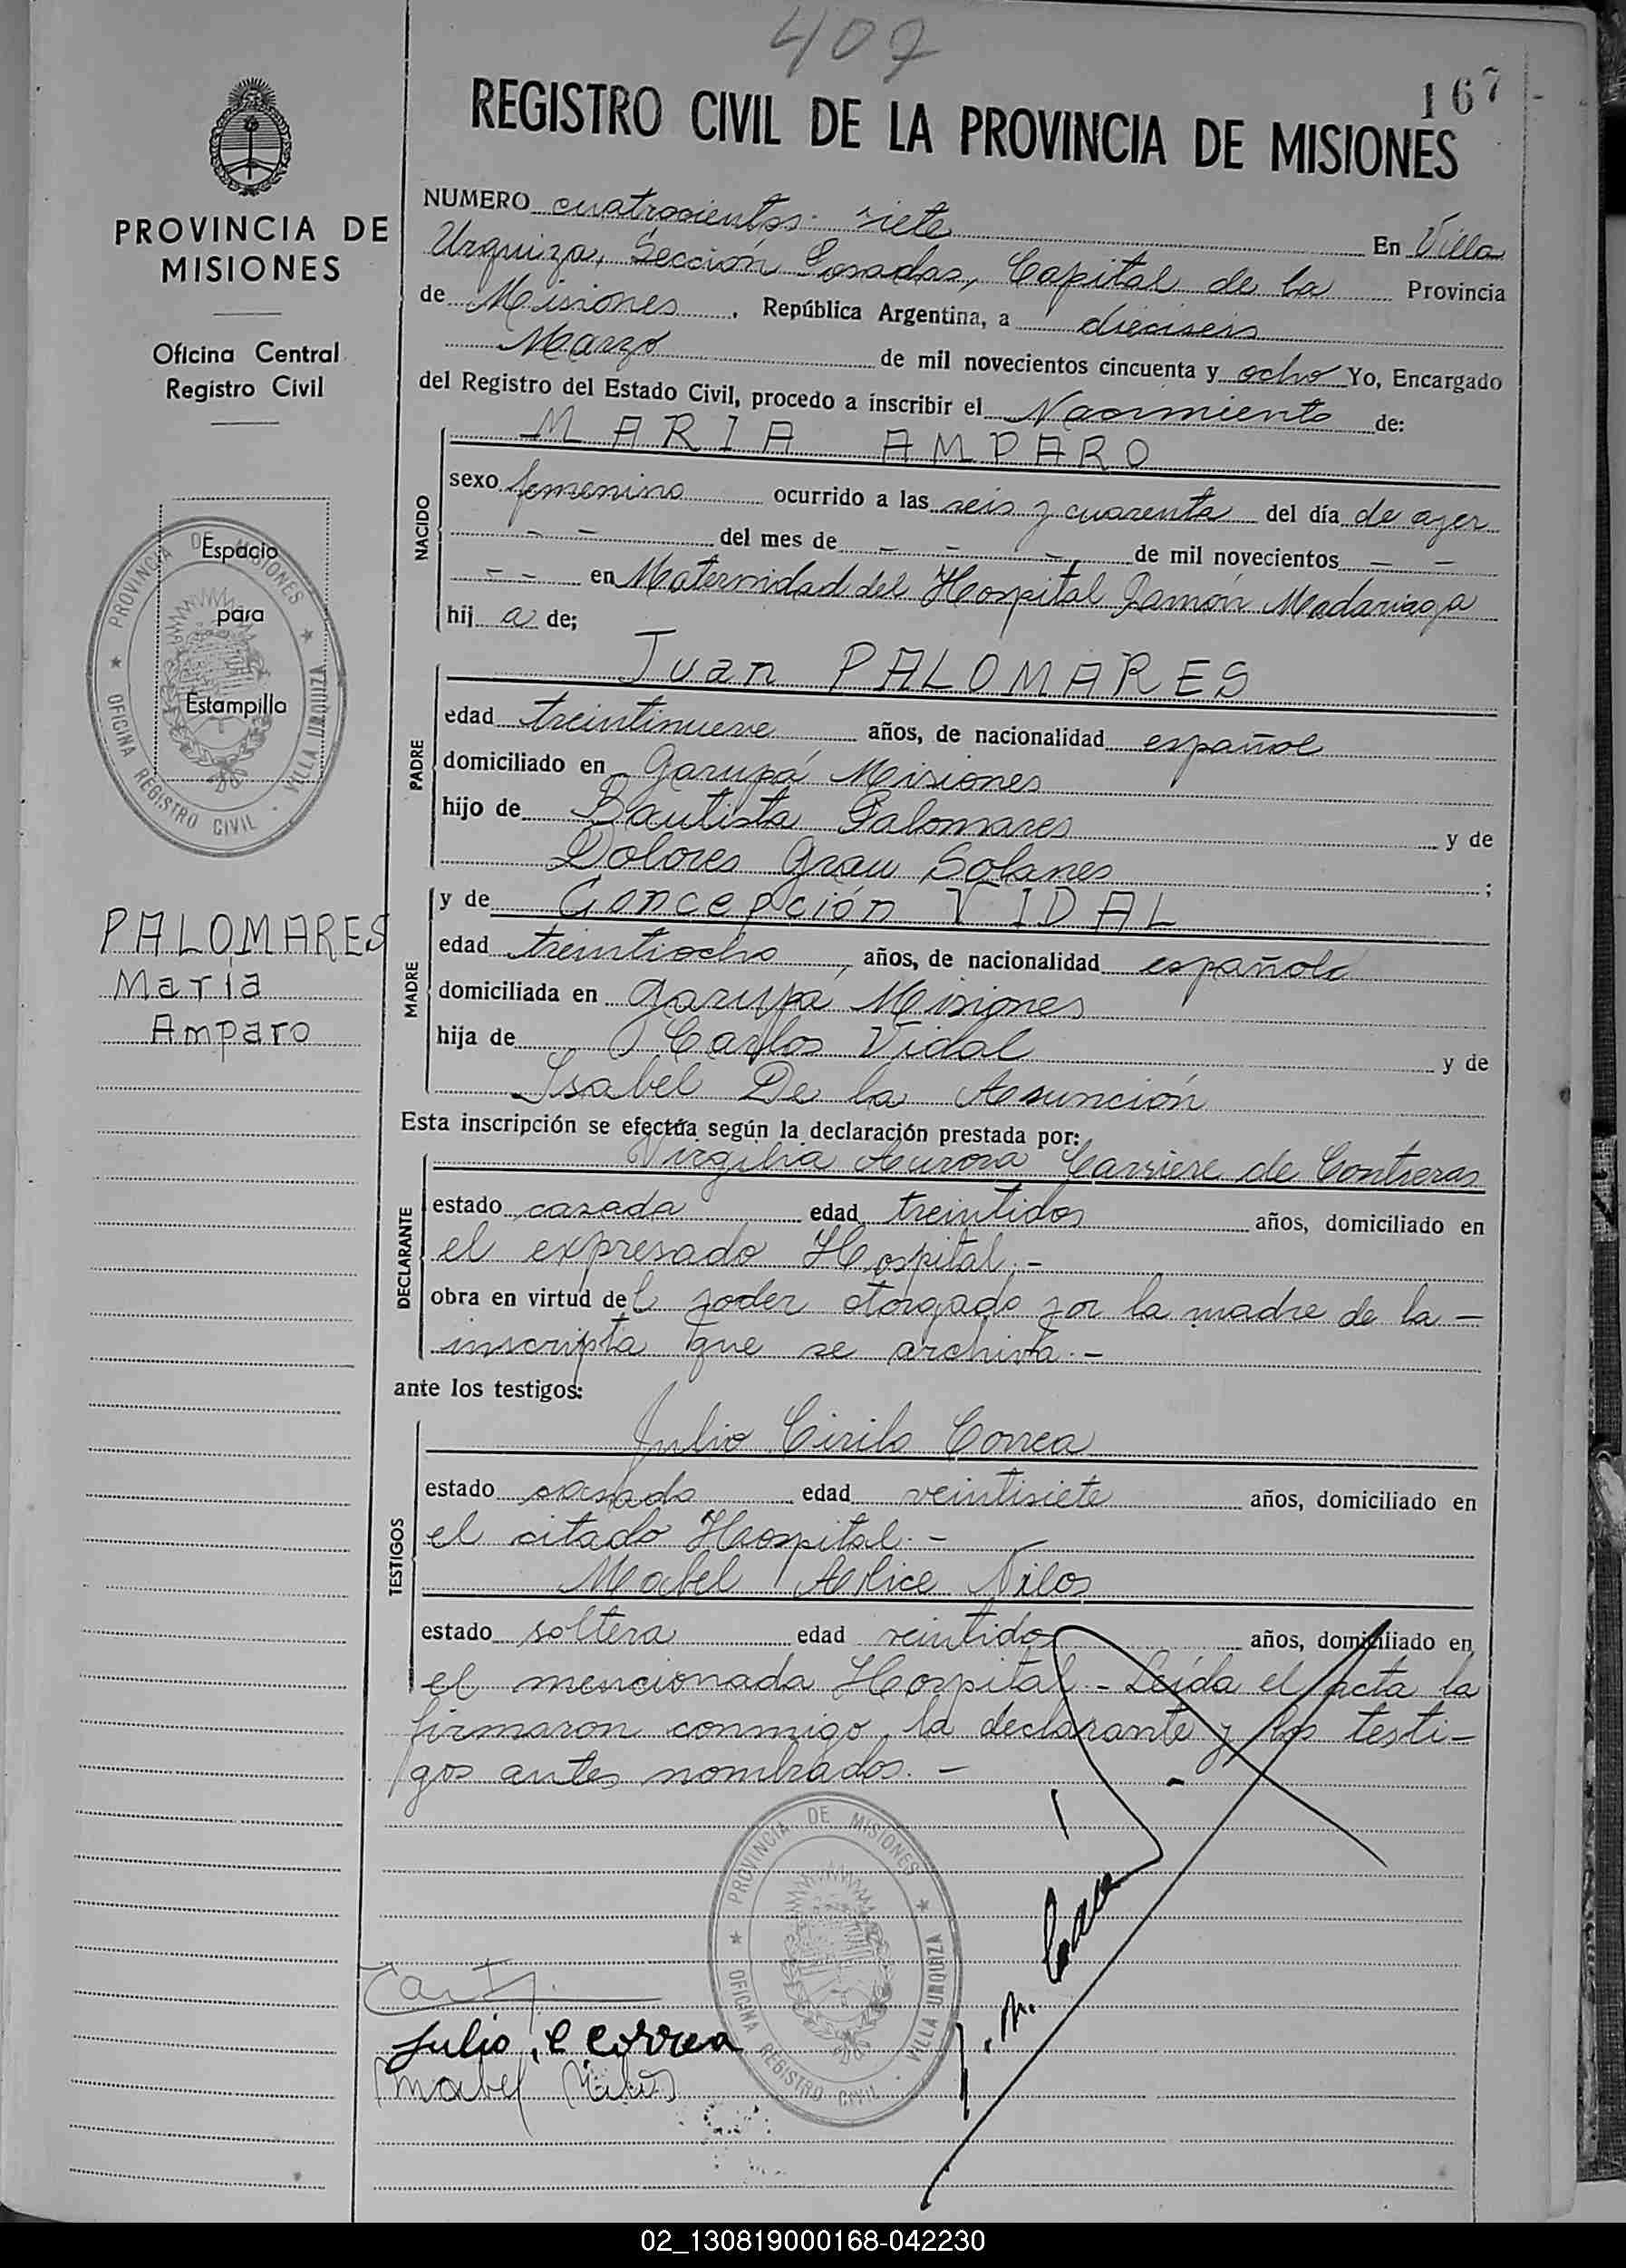 407
167
REGISTRO CIVIL DE LA PROVINCIA DE MISIONES
PROVINCIA DE
MISIONES
Oficina Central
Registro Civil
PROVINCIA DE MISIONES
OFICINA REGISTRO CIVIL · VILLA URQUIZA
Espacio
para
Estampilla
PALOMARES
María
Amparo
NUMERO cuatrocientos siete En Villa
Urquiza, Sección Posadas, Capital de la Provincia
de Misiones, República Argentina, a dieciseis
Marzo de mil novecientos cincuenta y ocho Yo, Encargado
del Registro del Estado Civil, procedo a inscribir el Nacimiento de:
NACIDO
MARIA AMPARO
sexo femenino ocurrido a las seis y cuarenta del día de ayer
- - del mes de - - - de mil novecientos - -
- - en Maternidad del Hospital Ramón Madariaga
hij a de;
PADRE
Juan PALOMARES
edad treintinueve años, de nacionalidad español
domiciliado en Garupá Misiones
hijo de Bautista Palomares y de
Dolores Grau Solanes ;
MADRE
y de Concepción VIDAL
edad treintiocho años, de nacionalidad española
domiciliada en Garupá Misiones
hija de Carlos Vidal y de
Isabel De la Asunción
Esta inscripción se efectúa según la declaración prestada por:
DECLARANTE
Virgilia Aurora Carriere de Contreras
estado casada edad treintidos años, domiciliado en
el expresado Hospital.-
obra en virtud del poder otorgado por la madre de la -
inscripta que se archiva.-
ante los testigos:
TESTIGOS
Julio Cirilo Correa
estado casado edad veintisiete años, domiciliado en
el citado Hospital.-
Mabel Alice Nilos
estado soltera edad veintidos años, domiciliado en
el mencionada Hospital.- Leída el acta la
firmaron conmigo, la declarante y los testi-
gos antes nombrados.-
PROVINCIA DE MISIONES
OFICINA REGISTRO CIVIL · VILLA URQUIZA
Julio, C Correa
Mabel Nilos
02_130819000168-042230